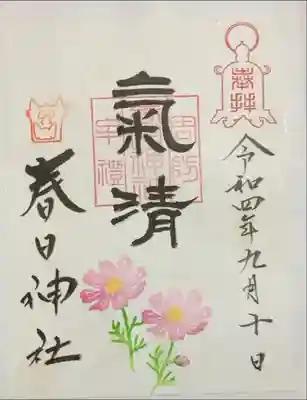 奉拝
令和四年九月十日
氣清
春日神社